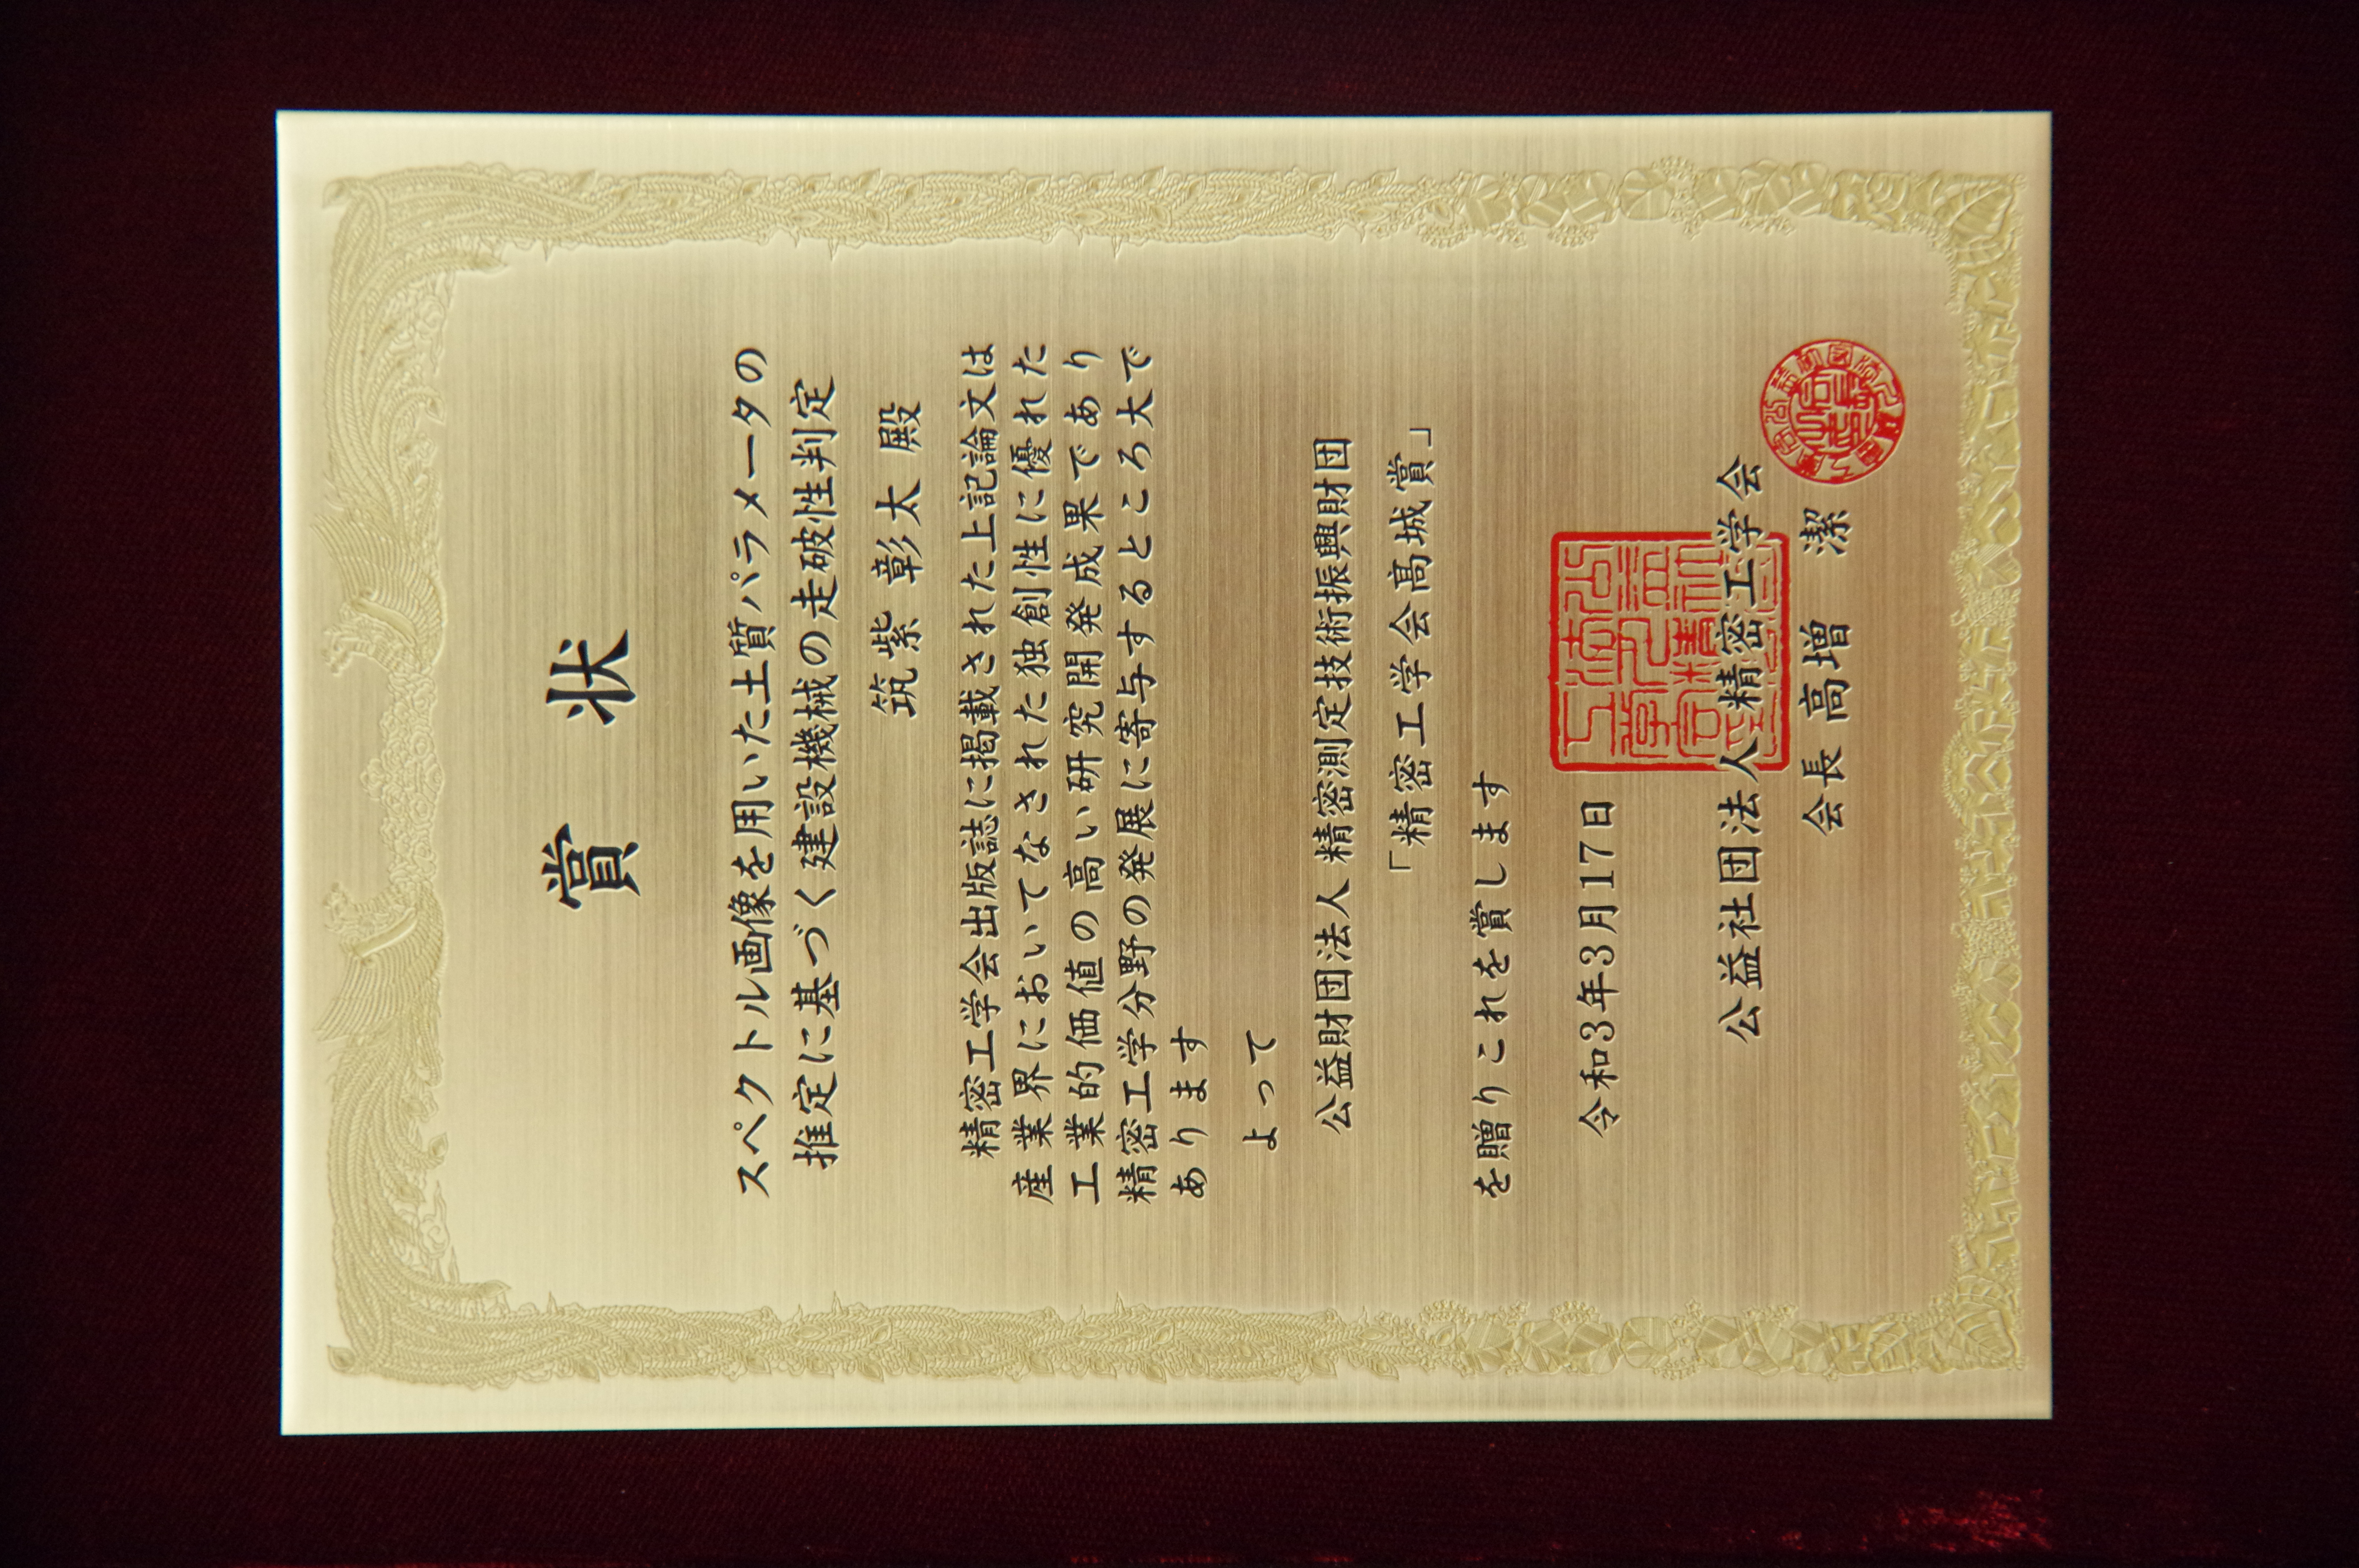 賞 状
スペクトル画像を用いた土質パラメータの
推定に基づく建設機械の走破性判定
筑紫 彰太 殿
精密工学会出版誌に掲載された上記論文は
産業界においてなされた独創性に優れた
工業的価値の高い研究開発成果であり
精密工学分野の発展に寄与するところ大で
あります
よって
公益財団法人 精密測定技術振興財団
「精密工学会髙城賞」
を贈りこれを賞します
令和3年3月17日
公益社団法人精密工学会
会長 高増 潔